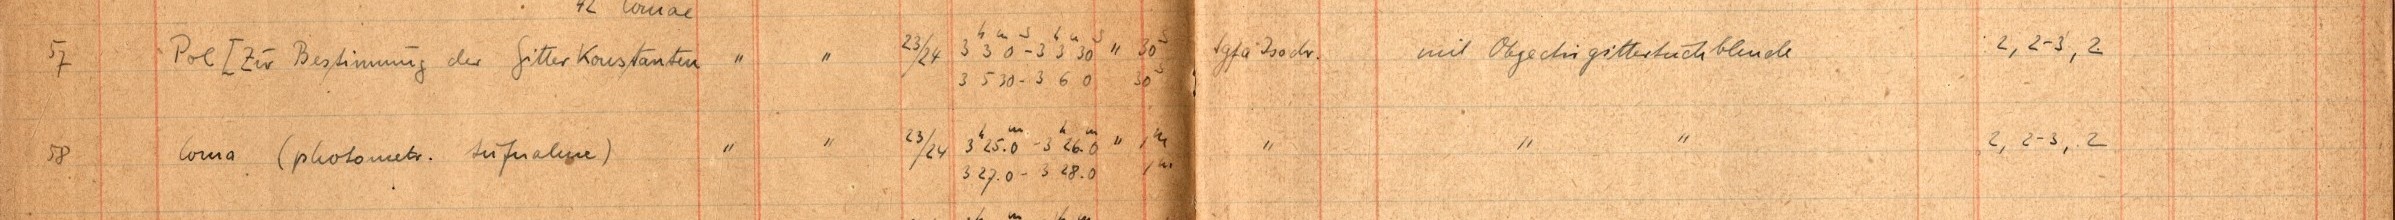 42 Comae
57 Pol [Zur Bestimmung der Gitter Konstanten " " 23/24 3h 3m 0s - 3h 3m 30s " 30s Agfa Isochr. mit Objectivgittertuchblende 2, 2-3, 2
3 5 30 - 3 6 0 30s
58 Coma (photometr. Aufnahme) " " 23/24 3h 25.m0 - 3h 26.m0 " 1m " " " 2, 2-3, 2
3 27.0 - 3 28.0 1m